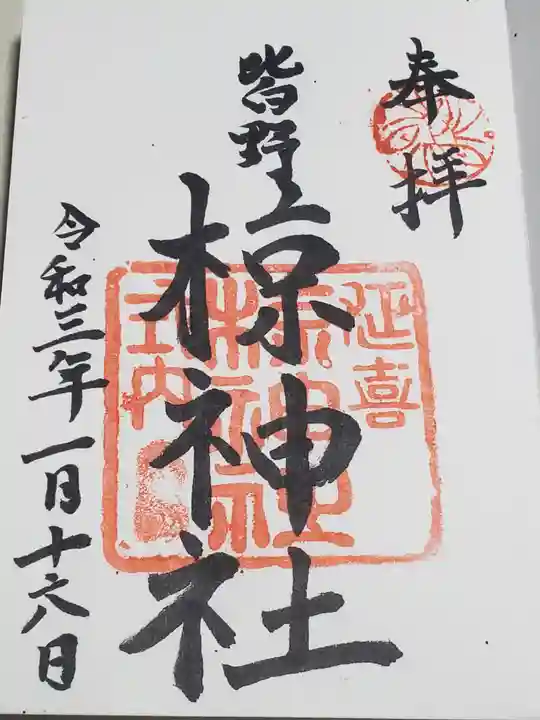 奉拝
皆野
椋神社
延喜
椋神社
式内
令和三年一月十六日